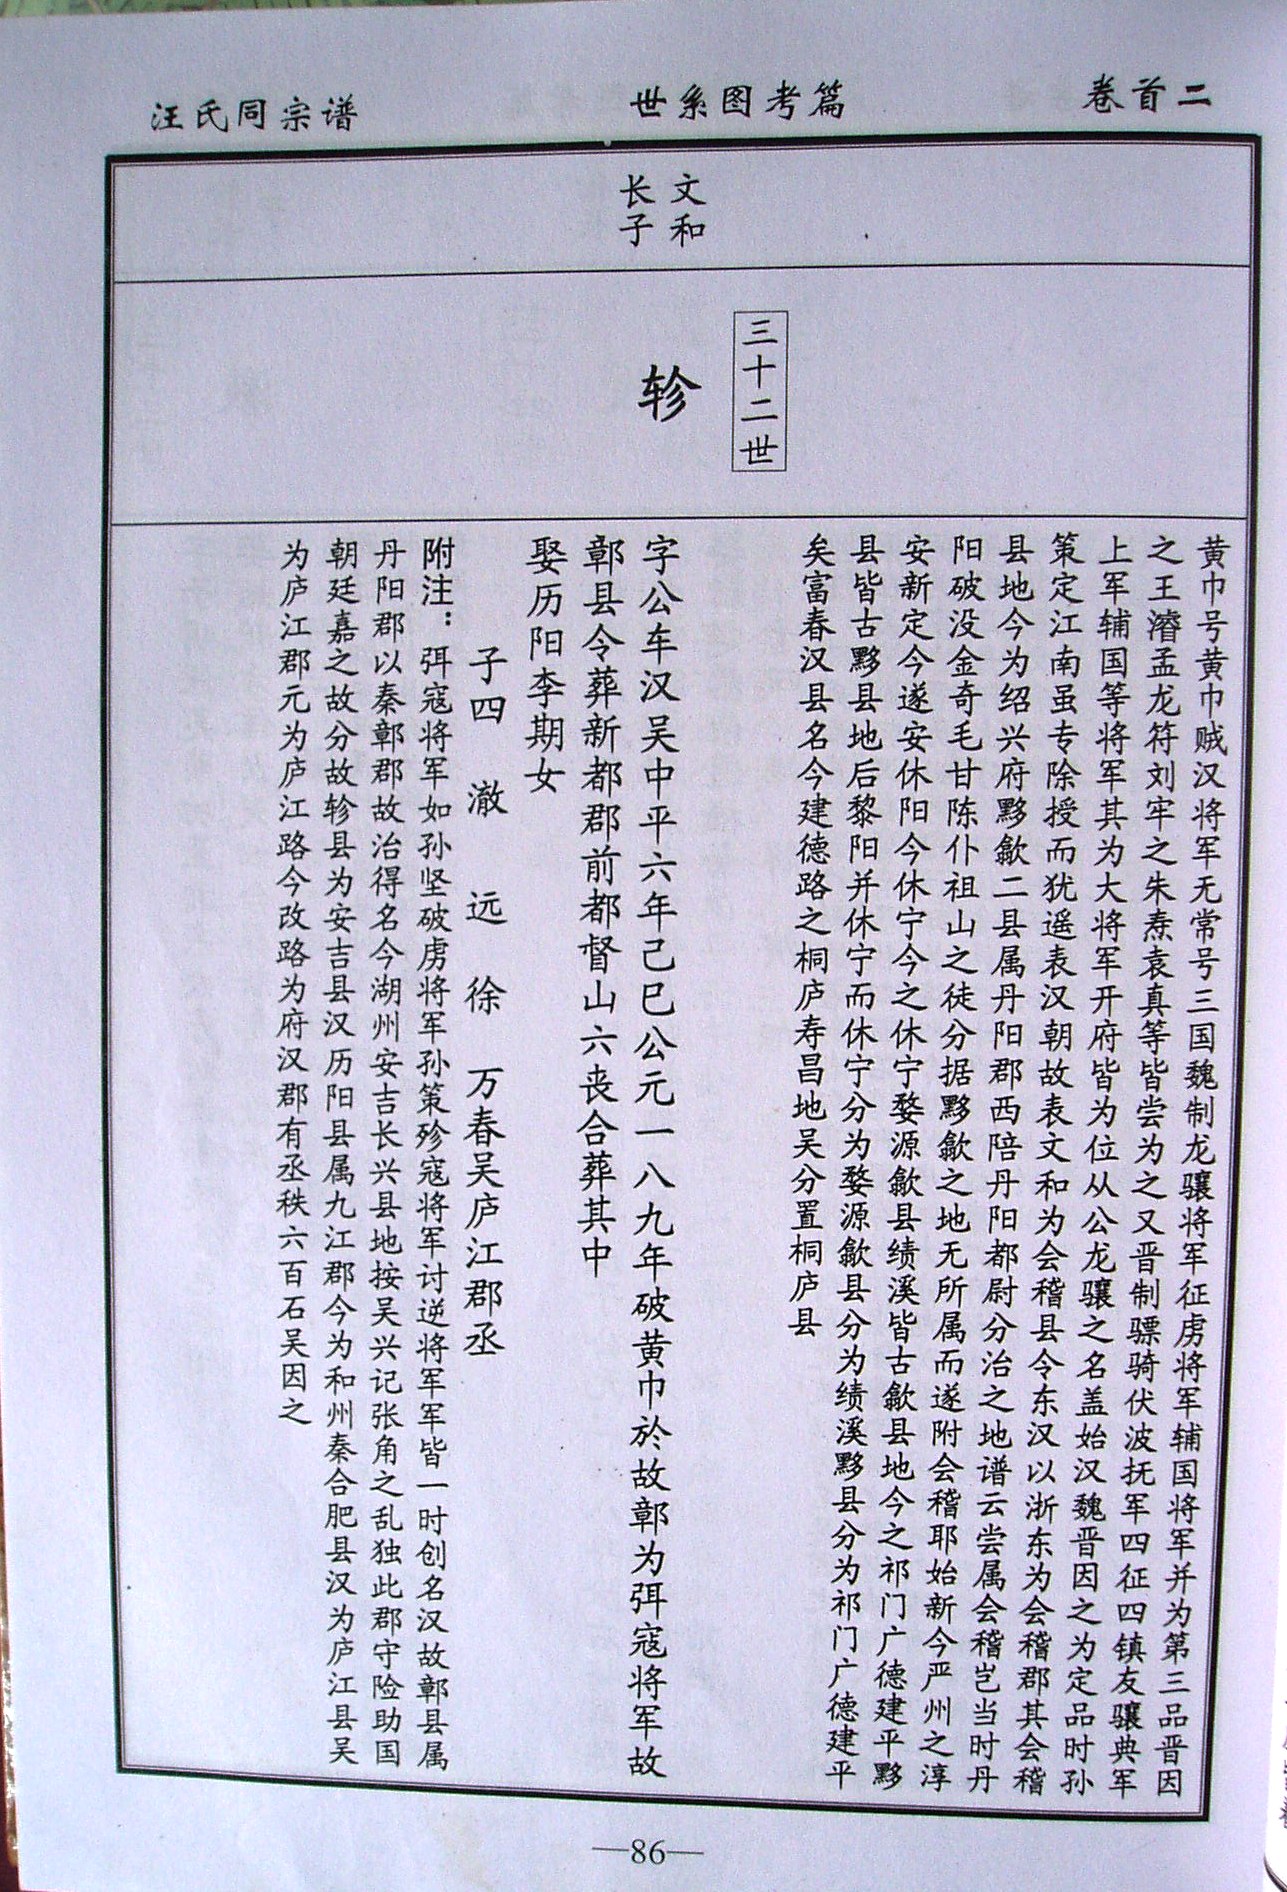 卷首二
世系图考篇
汪氏同宗谱
文和
长子
三十二世
轸
黄巾号黄巾贼汉将军无常号三国魏制龙骧将军征虏将军辅国将军并为第三品晋因
之王濬孟龙符刘牢之朱焘袁真等皆尝为之又晋制骠骑伏波抚军四征四镇友骧典军
上军辅国等将军其为大将军开府皆为位从公龙骧之名盖始汉魏晋因之为定品时孙
策定江南虽专除授而犹遥表汉朝故表文和为会稽县令东汉以浙东为会稽郡其会稽
县地今为绍兴府黟歙二县属丹阳郡西陪丹阳都尉分治之地谱云尝属会稽岂当时丹
阳破没金奇毛甘陈仆祖山之徒分据黟歙之地无所属而遂附会稽耶始新今严州之淳
安新定今遂安休阳今休宁今之休宁婺源歙县绩溪皆古歙县地今之祁门广德建平黟
县皆古黟县地后黎阳并休宁而休宁分为婺源歙县分为绩溪黟县分为祁门广德建平
矣富春汉县名今建德路之桐庐寿昌地吴分置桐庐县
字公车汉吴中平六年己巳公元一八九年破黄巾於故鄣为弭寇将军故
鄣县令葬新都郡前都督山六丧合葬其中
娶历阳李期女
子四 澈 远 徐 万春吴庐江郡丞
附注：弭寇将军如孙坚破虏将军孙策殄寇将军讨逆将军军皆一时创名汉故鄣县属
丹阳郡以秦鄣郡故治得名今湖州安吉长兴县地按吴兴记张角之乱独此郡守险助国
朝廷嘉之故分故轸县为安吉县汉历阳县属九江郡今为和州秦合肥县汉为庐江县吴
为庐江郡元为庐江路今改路为府汉郡有丞秩六百石吴因之
—86—